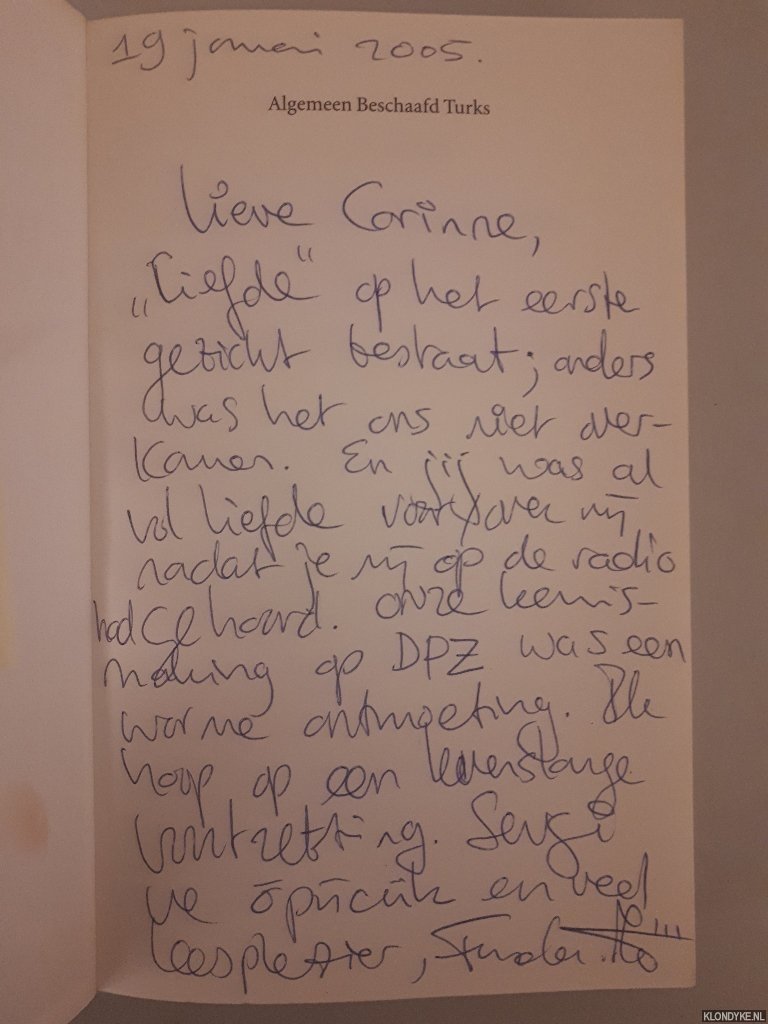 19 januari 2005.
Algemeen Beschaafd Turks
Lieve Corinne,
„Liefde“ op het eerste
gezicht bestaat; anders
was het ons niet over-
komen. En jij was al
vol liefde voor/over mij
nadat je mij op de radio
had gehoord. Onze kennis-
making op DPZ was een
warme ontmoeting. Ik
hoop op een levenslange
voortzetting. Sevgi
ve öpücük en veel
leesplezier,
KLONDYKE.NL